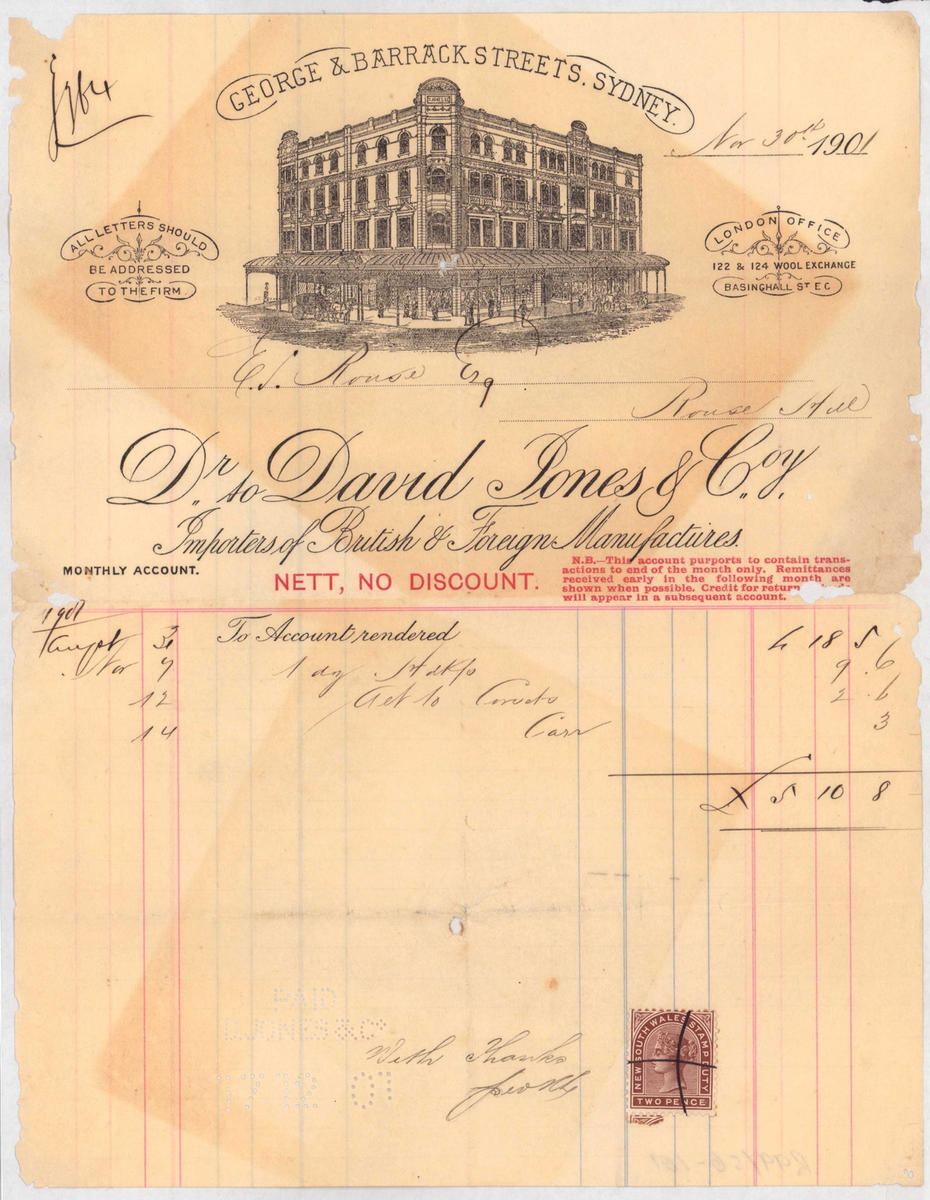 GEORGE & BARRACK STREETS. SYDNEY.
Nov 30th 1901
ALL LETTERS SHOULD
BE ADDRESSED
TO THE FIRM
LONDON OFFICE
122 & 124 WOOL EXCHANGE
BASINGHALL ST E.C
Rouse Esq
Rouse Hill
Dr. to David Jones & Coy.
Importers of British & Foreign Manufactures.
MONTHLY ACCOUNT.
NETT, NO DISCOUNT.
N.B.—This account purports to contain trans-
actions to end of the month only. Remittances
received early in the following month are
shown when possible. Credit for return
will appear in a subsequent account.
1901
Augst 31 To Account rendered 4 18 5
Nov 7 1 dz Hdkfs 9 .6
12 2 .6
14 3
£ 5 10 8
PAID
D. JONES & Co
01
With Thanks
NEW SOUTH WALES STAMP DUTY
TWO PENCE